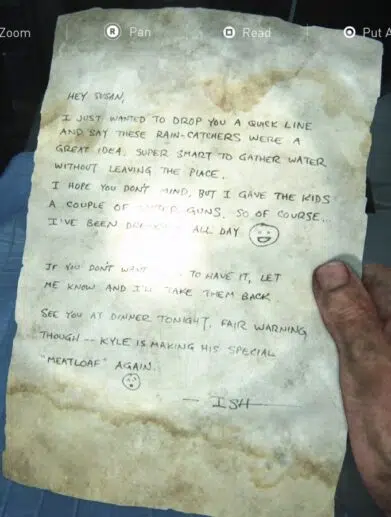 Zoom
R Pan
Read
Put A
HEY SUSAN,
I JUST WANTED TO DROP YOU A QUICK LINE
AND SAY THESE RAIN-CATCHERS WERE A
GREAT IDEA. SUPER SMART TO GATHER WATER
WITHOUT LEAVING THE PLACE.
I HOPE YOU DON'T MIND, BUT I GAVE THE KIDS
A COUPLE OF GUNS. SO OF COURSE...
I'VE BEEN ALL DAY
IF YOU DON'T WANT TO HAVE IT, LET
ME KNOW AND I'LL TAKE THEM BACK
SEE YOU AT DINNER TONIGHT, FAIR WARNING
THOUGH -- KYLE IS MAKING HIS SPECIAL
"MEATLOAF" AGAIN.
— ISH